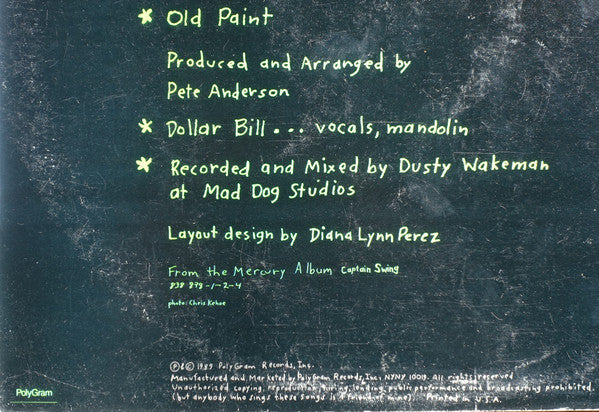 * Old Paint
Produced and Arranged by
Pete Anderson
* Dollar Bill... vocals, mandolin
* Recorded and Mixed by Dusty Wakeman
at Mad Dog Studios
Layout design by Diana Lynn Perez
From the Mercury Album Captain Swing
838 878-1-2-4
photo: Chris Kehoe
℗&© 1989 PolyGram Records, Inc.
Manufactured and Marketed by PolyGram Records, Inc. NYNY 10019. All rights reserved
Unauthorized copying, reproduction, hiring, lending, public performance and broadcasting prohibited.
(but anybody who sings these songs is a friend of mine). Printed in U.S.A.
PolyGram